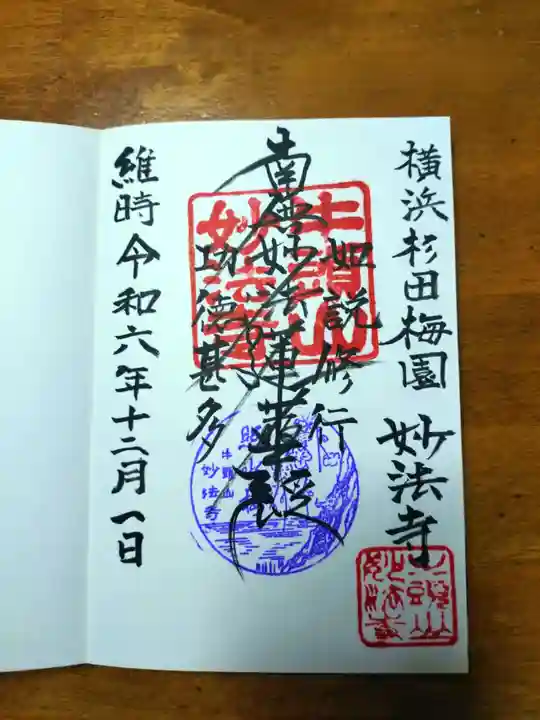 横浜杉田梅園 妙法寺
如説修行
南無妙法蓮華経
功徳甚多
維時令和六年十二月一日
牛頭山
妙法寺
牛頭山
妙法寺